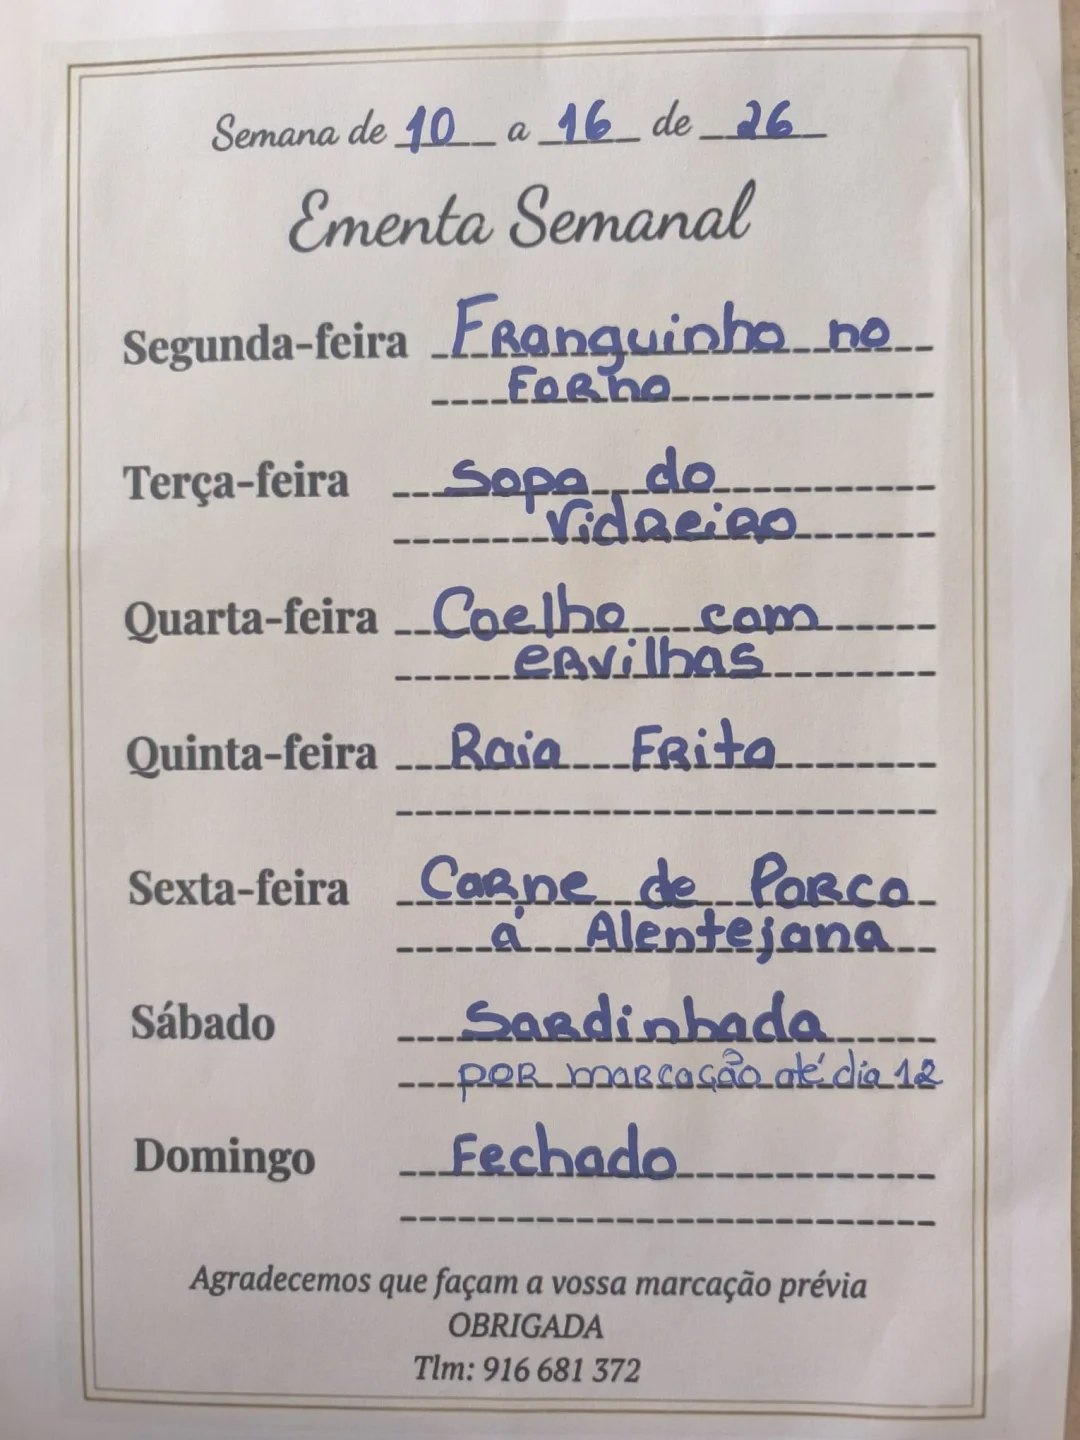 Semana de 10 a 16 de 26
Ementa Semanal
Segunda-feira Franguinho no
Forno
Terça-feira Sopa do
Vidreiro
Quarta-feira Coelho com
ervilhas
Quinta-feira Raia Frita
Sexta-feira Carne de Porco
á Alentejana
Sábado Sardinhada
por marcação até dia 12
Domingo Fechado
Agradecemos que façam a vossa marcação prévia
OBRIGADA
Tlm: 916 681 372